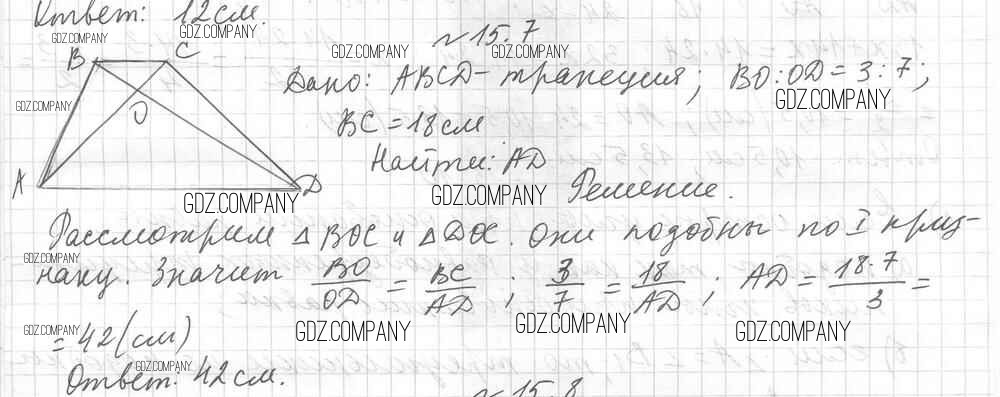 Ответ: 12 см.
GDZ.COMPANY
GDZ.COMPANY
B C
O
A D
GDZ.COMPANY
GDZ.COMPANY
№15.7
GDZ.COMPANY
GDZ.COMPANY
Дано: ABCD - трапеция; BO:OD = 3:7;
GDZ.COMPANY
BC = 18 см
Найти: AD
GDZ.COMPANY
Решение.
Рассмотрим △ BOC и △ DOC. Они подобны по I приз-
GDZ.COMPANY
наку. Значит BO/OD = BC/AD ; 3/7 = 18/AD ; AD = 18·7/3 =
GDZ.COMPANY
GDZ.COMPANY
GDZ.COMPANY
GDZ.COMPANY
= 42 (см)
GDZ.COMPANY
Ответ: 42 см.
№15.8